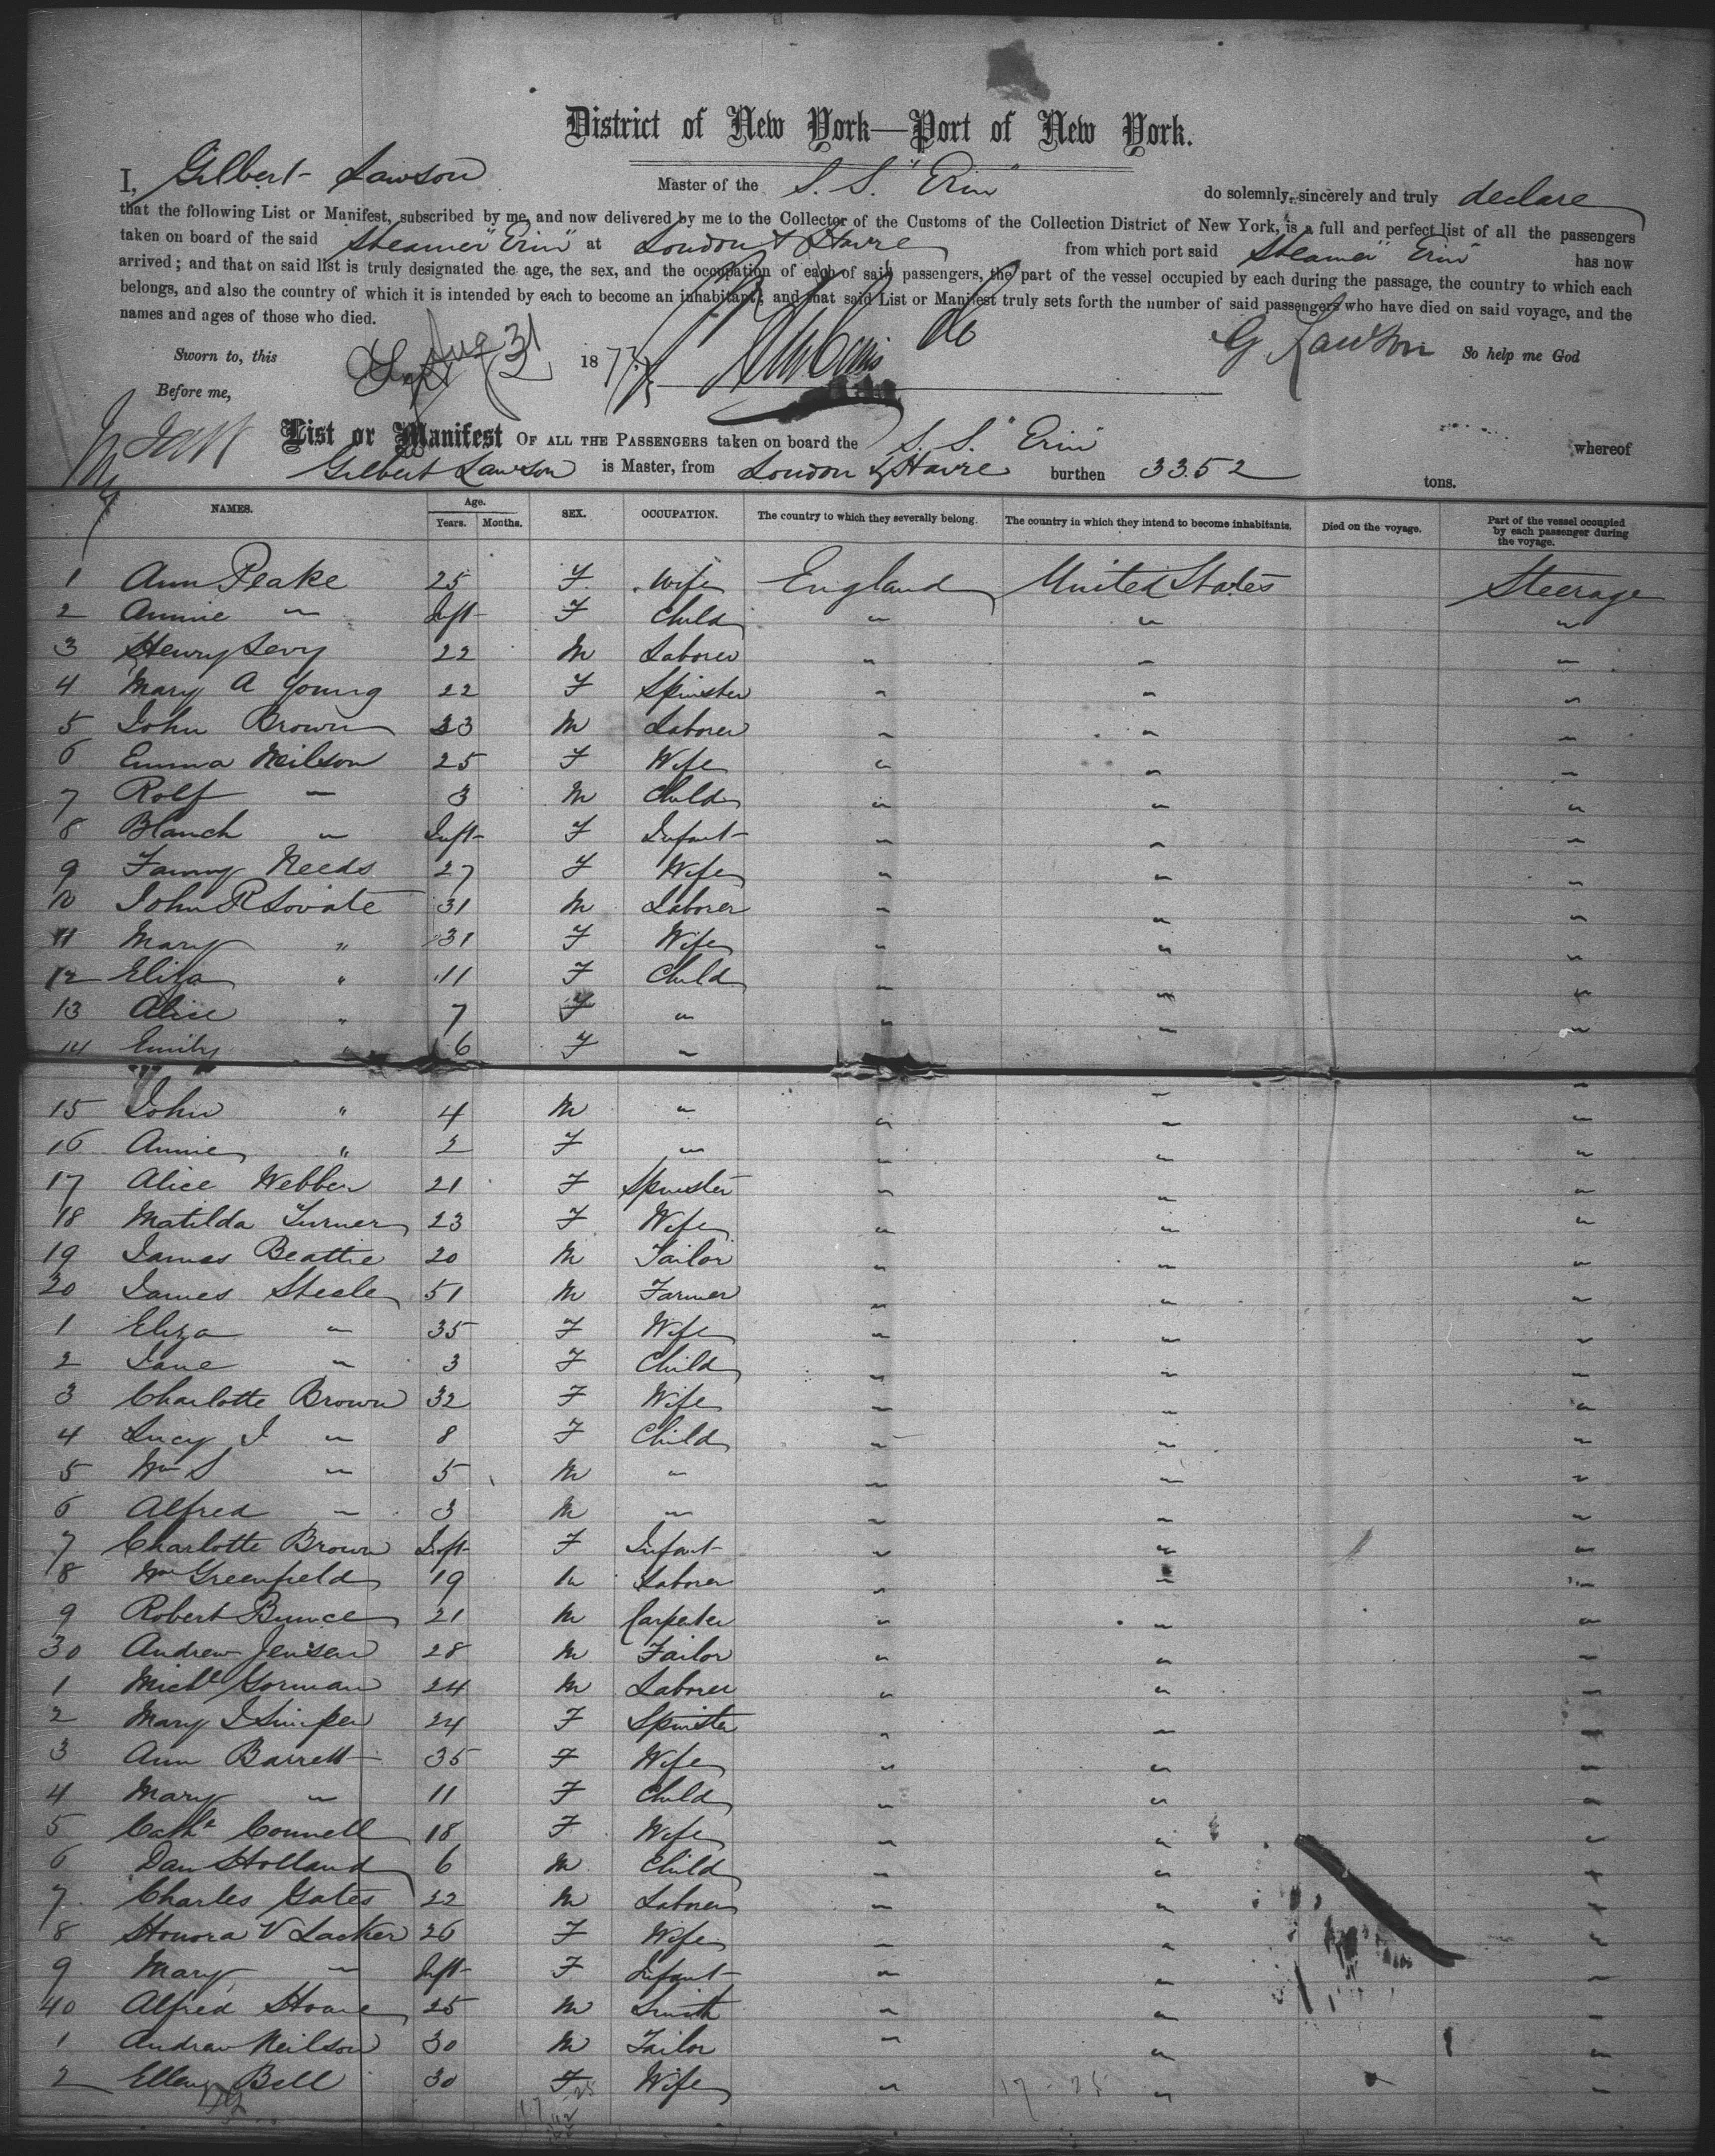 District of New York—Port of New York.
I, Gilbert Lawson Master of the S. S. "Erin" do solemnly, sincerely and truly declare
that the following List or Manifest, subscribed by me, and now delivered by me to the Collector of the Customs of the Collection District of New York, is a full and perfect list of all the passengers
taken on board of the said Steamer "Erin" at London & Havre from which port said Steamer "Erin" has now
arrived; and that on said list is truly designated the age, the sex, and the occupation of each of said passengers, the part of the vessel occupied by each during the passage, the country to which each
belongs, and also the country of which it is intended by each to become an inhabitant; and that said List or Manifest truly sets forth the number of said passengers who have died on said voyage, and the
names and ages of those who died.
Sworn to, this Aug 31 1877 G Lawson So help me God
Before me,
List or Manifest OF ALL THE PASSENGERS taken on board the S. S. "Erin" whereof
Gilbert Lawson is Master, from London & Havre burthen 3352 tons.
NAMES. Age. Years. Months. SEX. OCCUPATION. The country to which they severally belong. The country in which they intend to become inhabitants. Died on the voyage. Part of the vessel occupied by each passenger during the voyage.
1 Ann Peake 25 F Wife England United States Steerage
2 Annie " Inft F Child " " "
3 Henry Levy 22 M Laborer " " "
4 Mary A Young 22 F Spinster " " "
5 John Brown 23 M Laborer " " "
6 Emma Neilson 25 F Wife " " "
7 Rolf " 3 M Child " " "
8 Blanch " Inft F Infant " " "
9 Fanny Needs 27 F Wife " " "
10 John R Lovate 31 M Laborer " " "
11 Mary " 31 F Wife " " "
12 Eliza " 11 F Child " " "
13 Alice " 7 F " " " "
14 Emily " 6 F " " " "
15 John " 4 M " " " "
16 Annie " 2 F " " " "
17 Alice Webber 21 F Spinster " " "
18 Matilda Turner 23 F Wife " " "
19 James Beattie 20 M Tailor " " "
20 James Steele 51 M Farmer " " "
1 Eliza " 35 F Wife " " "
2 Jane " 3 F Child " " "
3 Charlotte Brown 32 F Wife " " "
4 Lucy J " 8 F Child " " "
5 Wm S " 5 M " " " "
6 Alfred " 3 M " " " "
7 Charlotte Brown Inft F Infant " " "
8 Wm Greenfield 19 M Laborer " " "
9 Robert Bunce 21 M Carpenter " " "
30 Andrew Jensen 28 M Tailor " " "
1 Michl Gorman 24 M Laborer " " "
2 Mary J 24 F Spinster " " "
3 Ann Barrett 35 F Wife " " "
4 Mary " 11 F Child " " "
5 Cathe Connell 18 F Wife " " "
6 Dan Holland 6 M Child " " "
7 Charles Gates 22 M Laborer " " "
8 Honora V Lacker 26 F Wife " " "
9 Mary " Inft F Infant " " "
40 Alfred Hoare 25 M Smith " " "
1 Andrew Neilson 30 M Tailor " " "
2 Ellen Bell 30 F Wife " " "
17 - 25